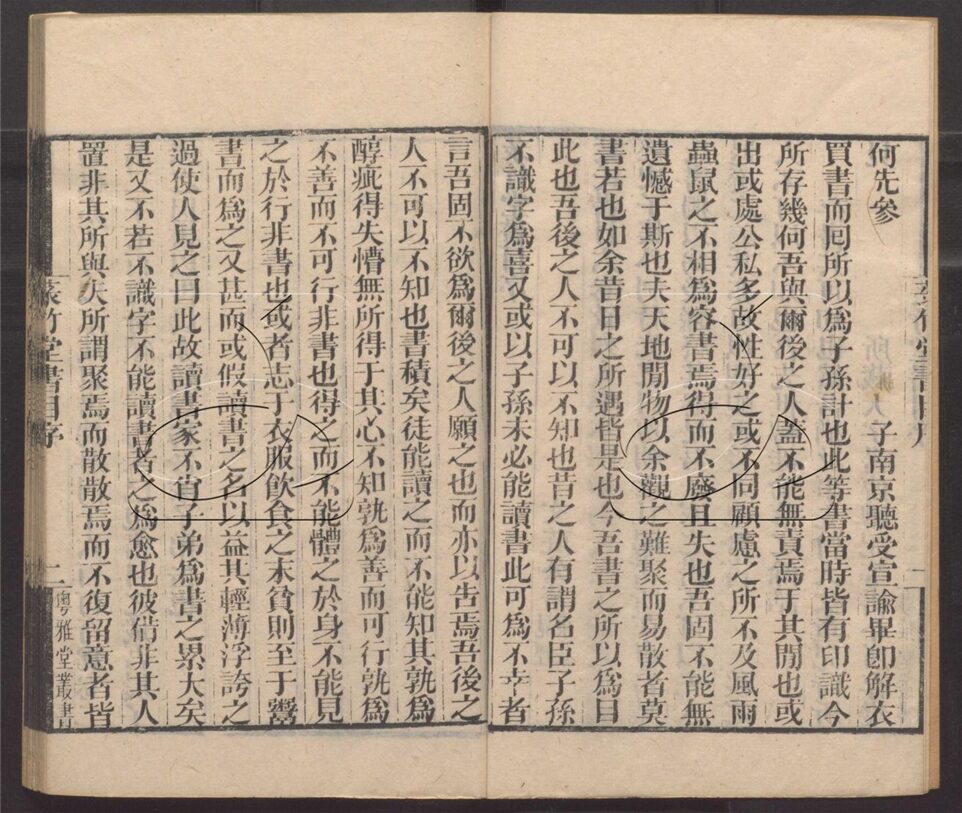 何先參　　　子南京聽受宣諭畢卽解衣
買書而囘所以爲子孫計也此等書當時皆有印識今
所存幾何吾與爾後之人蓋不能無責焉于其閒也或
出或處公私多故性好之或不同顧慮之所不及風雨
蟲鼠之不相爲容書焉得而不廢且失也吾固不能無
遺憾于斯也夫天地閒物以余觀之難聚而易散者莫
書若也如余昔日之所遇皆是也今吾書之所以爲目
此也吾後之人不可以不知也昔之人有謂名臣子孫
不識字爲喜又或以子孫未必能讀書此可爲不幸者
言吾固不欲爲爾後之人願之也而亦以告焉吾後之
人不可以不知也書積矣徒能讀之而不能知其孰爲
醇疵得失懵無所得于其心不知孰爲善而可行孰爲
不善而不可行非書也得之而不能體之於身不能見
之於行非書也或者志于衣服飲食之末貧則至于鬻
書而爲之又甚而或假讀書之名以益其輕薄浮誇之
過使人見之曰此故讀書家不肖子弟爲書之累大矣
是又不若不識字不能讀書者之爲愈也彼借非其人
置非其所與夫所謂聚焉而散散焉而不復留意者皆
菉竹堂書目序
二
粵雅堂叢書